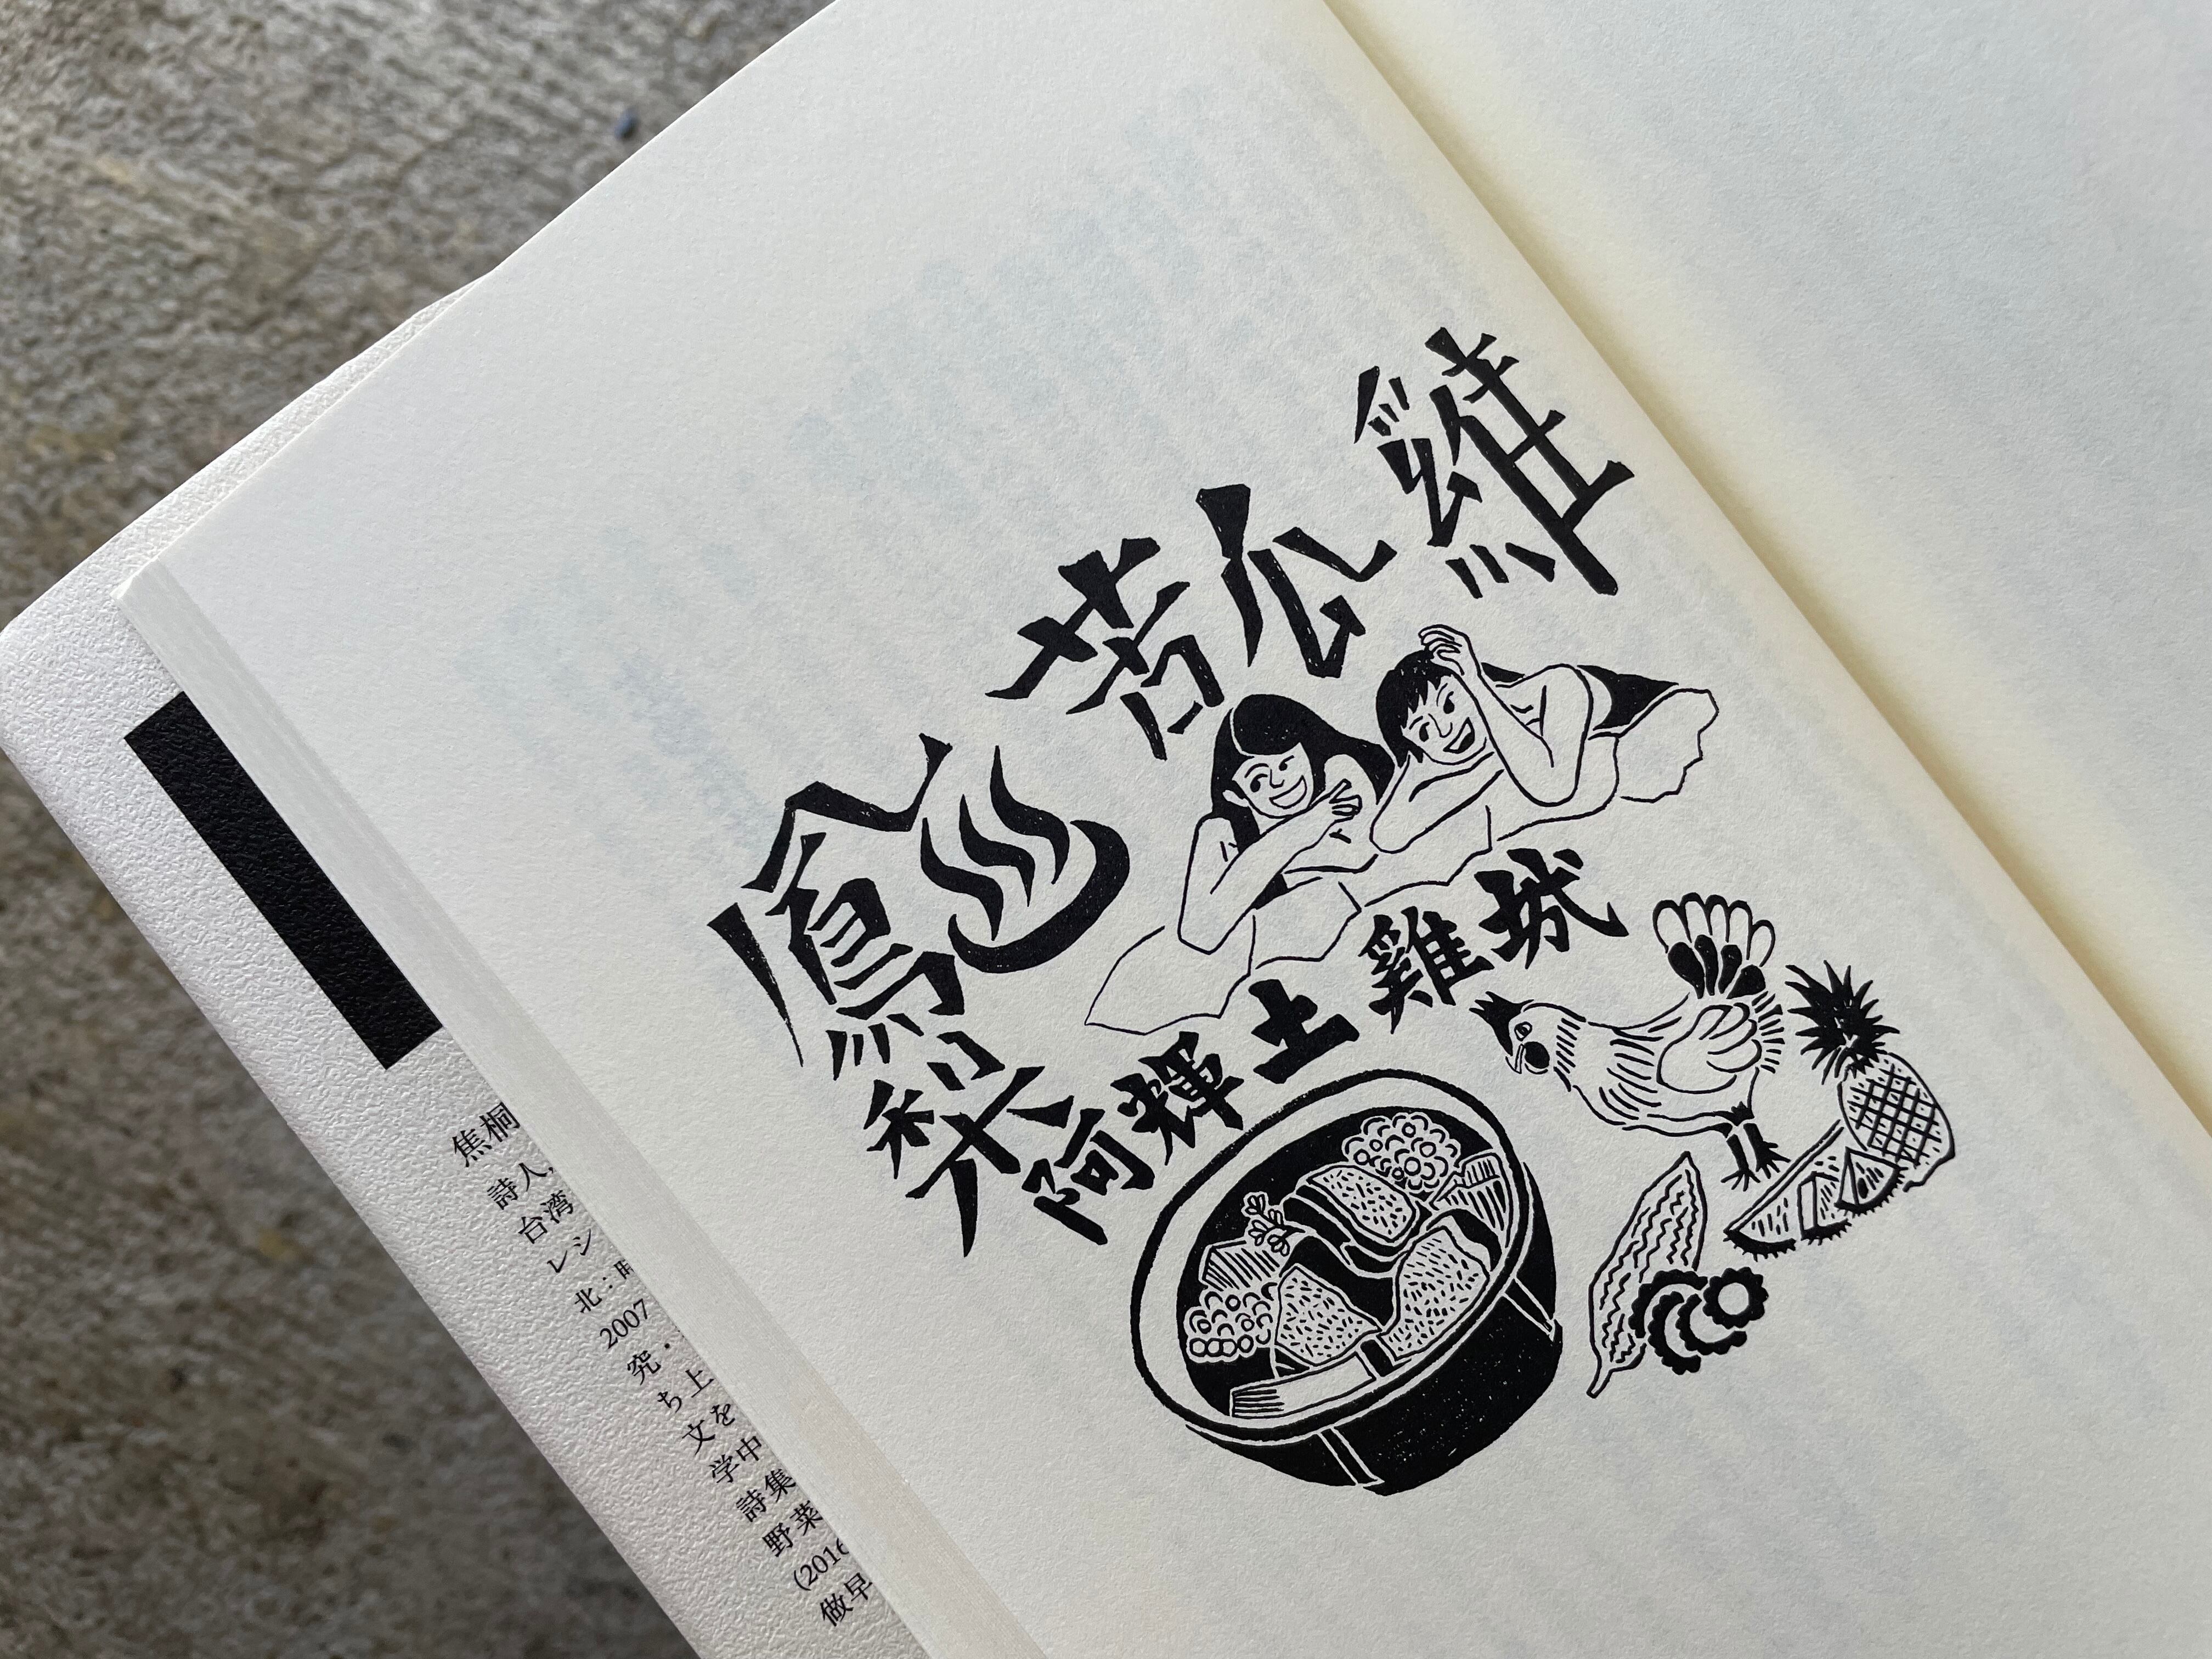 鳳梨苦瓜雞
阿輝土雞城
焦桐
詩人,
台湾
レシ
北：時
2007
究・
ち上
文を
学中
詩集
野菜
(2016
做早